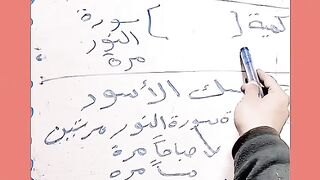 كمية [ ] سورة
النور
مرة
الأسود
سورة النور مرتين
صباحاً مرة
مساءً مرة